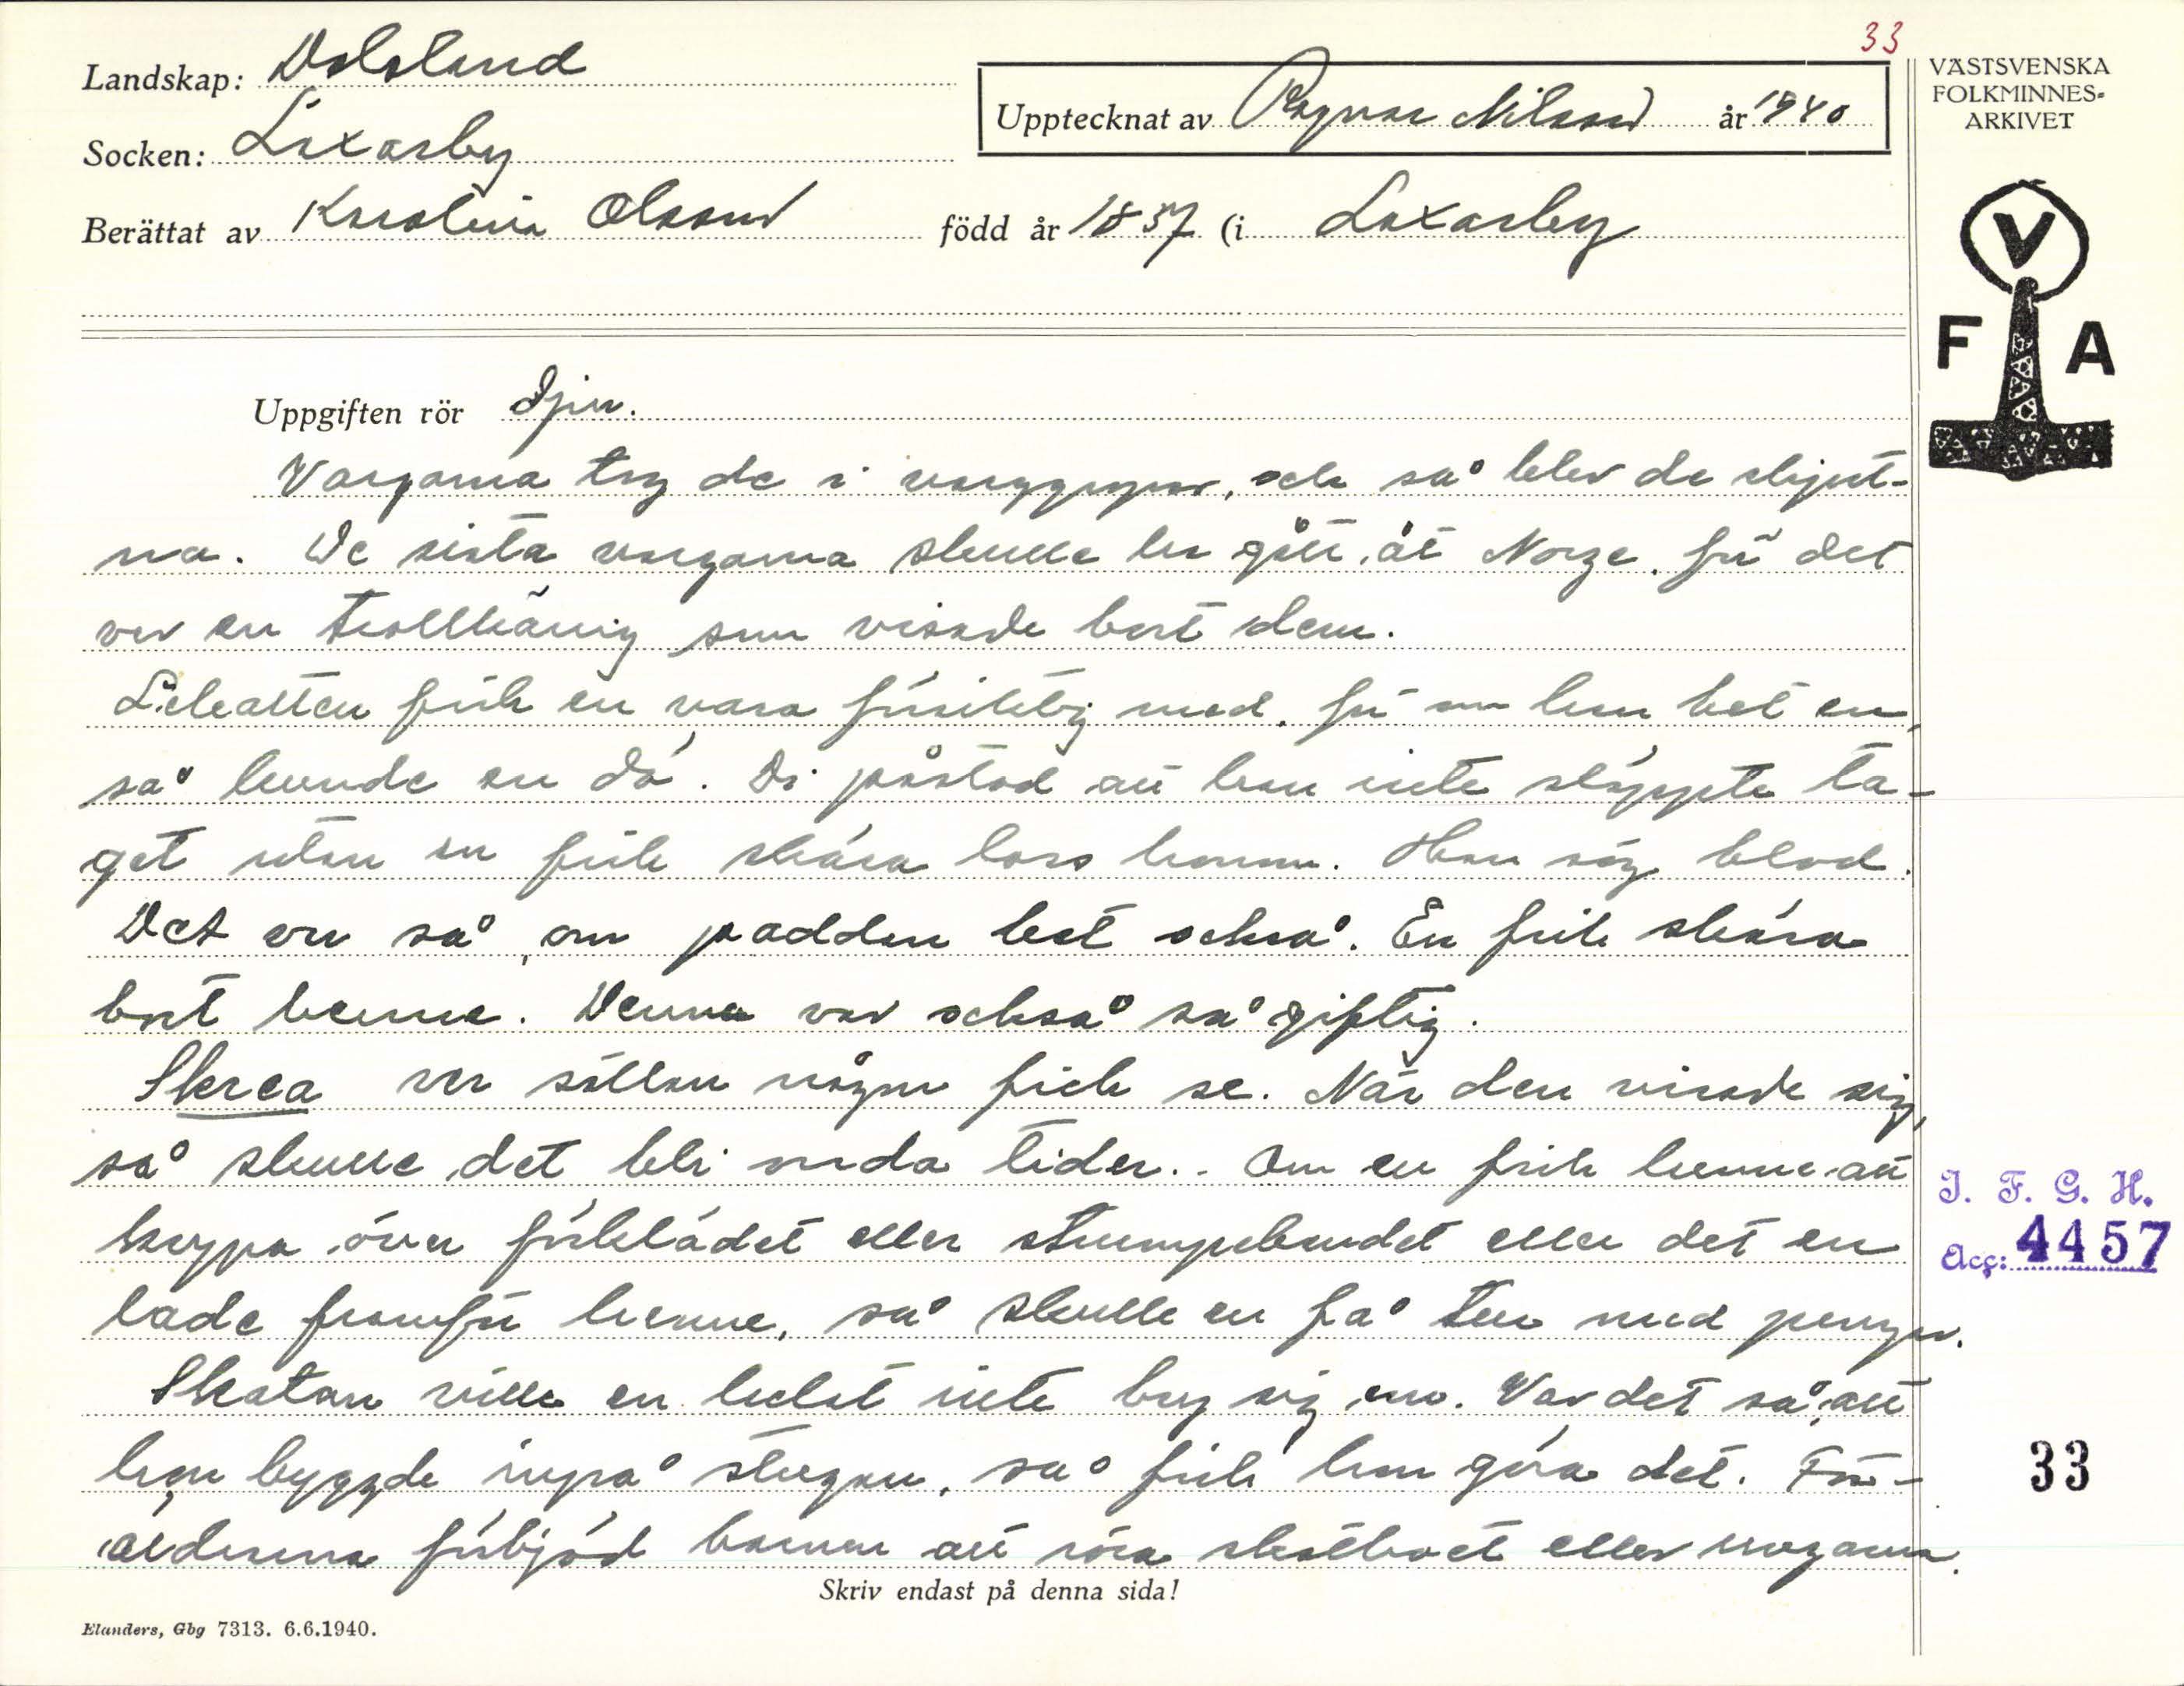 33
Landskap: Dalsland
Upptecknat av Ragnar Nilsson år 1940
VÄSTSVENSKA
FOLKMINNES-
ARKIVET
Socken: Laxarby
Berättat av Karolina Olsson född år 1857 (i Laxarby
V
F A
Uppgiften rör Djur.
Vargarna tog de i varggropar, och så blev de skjut-
na. De sista vargarna skulle ha gått åt Norge, för det
var en trollkärring som visade bort dem.
Lekatten fick en vara försiktig med, för om han bet en,
så kunde en dö. Di påstod att han inte släppte ta-
get utan en fick skära loss honom. Han sög blod.
Det var så, om padden bet också. En fick skära
bort henne. Denna var också så giftig.
Skrea var sällan någon fick se. När den visade sig,
så skulle det bli onda tider. Om en fick henne att
krypa över förklädet eller strumpebandet eller det en
lade framför henne, så skulle en få tur med pengar.
Skatan ville en helst inte bry sig om. Var det så, att
hon byggde inpå stugan, så fick hon göra det. För-
äldrarna förbjöd barnen att röra skatboet eller ungarna.
J. F. G. H.
Acc: 4457
33
Skriv endast på denna sida!
Elanders, Gbg 7313. 6.6.1940.